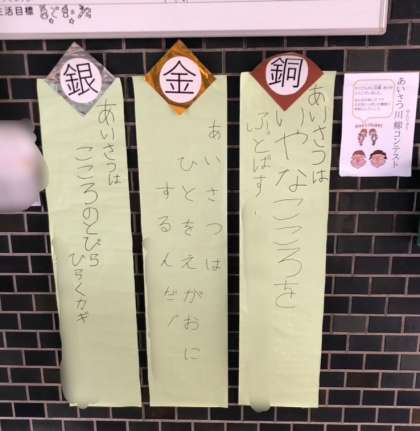 生活目標
銅
あいさつは
いやなこころを
ぶっとばす
金
あいさつは
ひとをえがおに
するんだ!
銀
あいさつは
こころのとびら
ひらくカギ
あいさつ川柳コンテスト